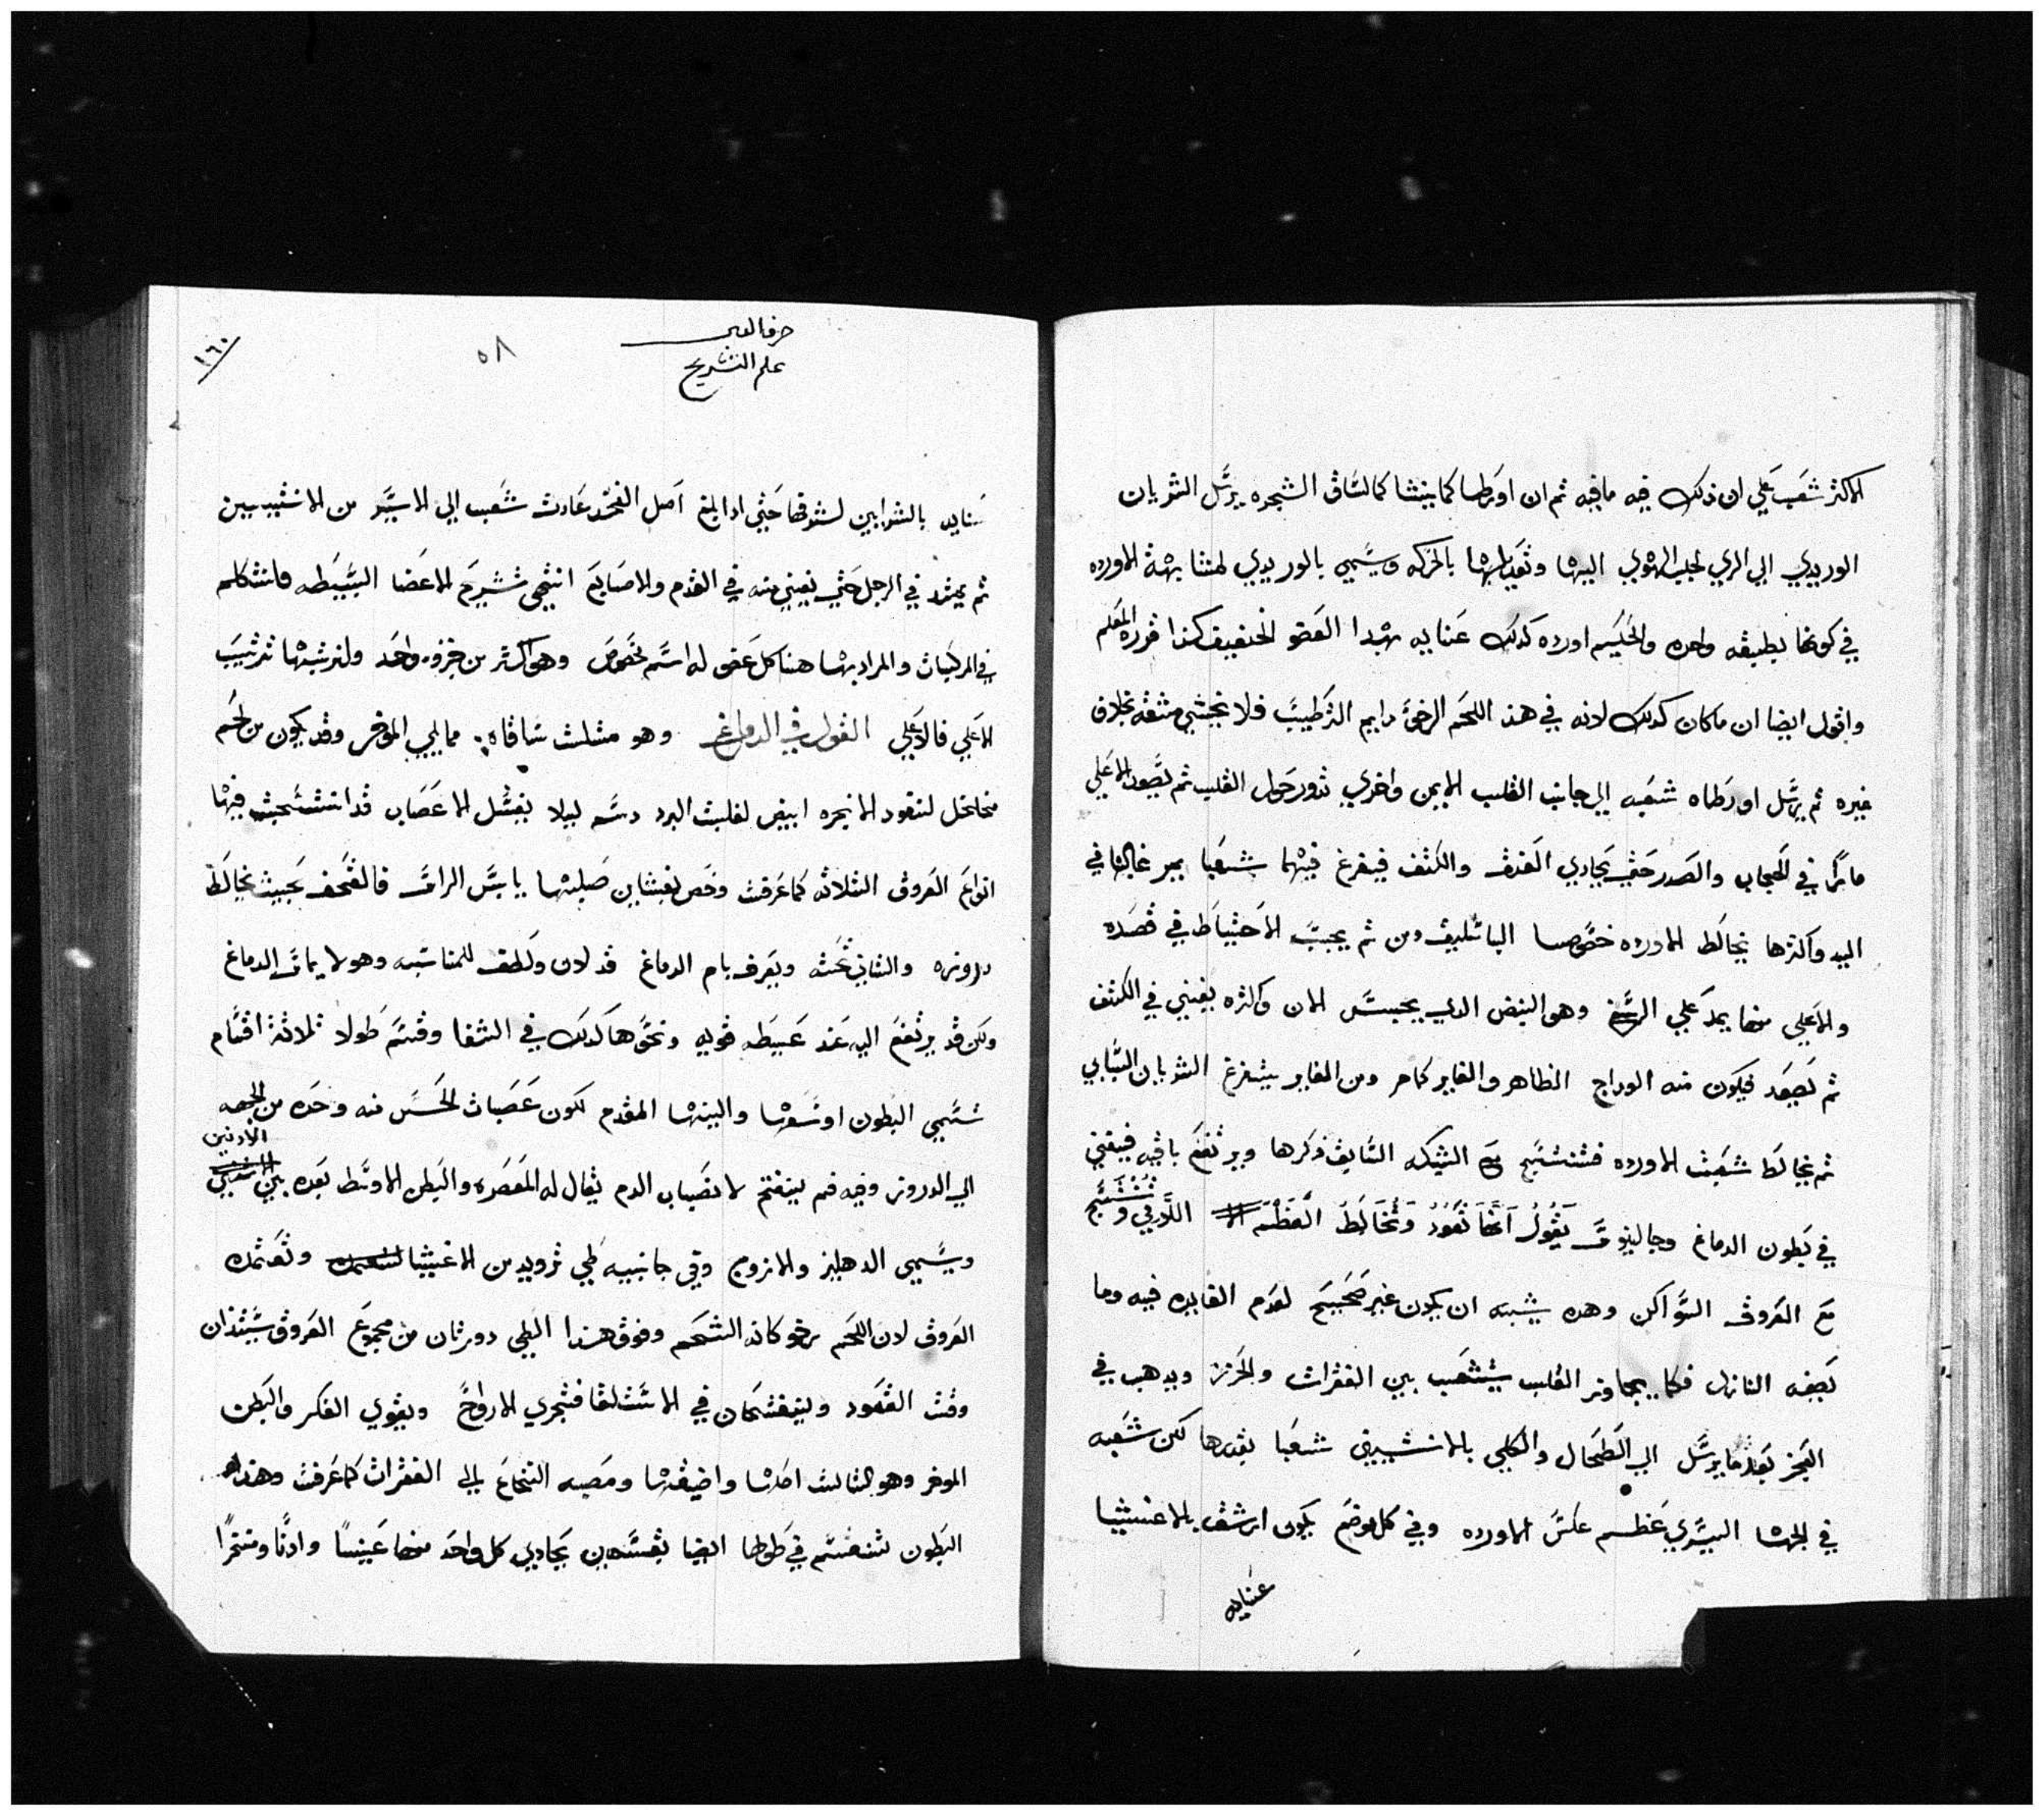 الاكثر شعب علي ان ذلك فيه ما فيه ثم ان اورطا كما ينشا كالساق الشجره يرسل الشريان
الوريدي الي الري لجلب الهوي اليها وتعديلها بالحركه ويسمي بالوريدي لمشابهة الاورده
في كونها بطبقه واحده والحكيم اورده كذلك عنايه بهدا العضو الخفيف كذا قرره المعلم
واقول ايضا ان ما كان كدلك لانه في هذا اللحم الرخو دايم الترطيب فلا يخشي منه بخلاف
غيره ثم يرسل اورطاه شعبه الي جانب القلب الايمن واخري تدور حول القلب ثم يصعد الاعلي
مارا في الحجاب والصدر حتي يحادي العنق والكتف فيفرغ فيهما شعبا يمر غالبها في
اليد واكثرها يخالط الاورده خصوصا الباسليق ومن ثم يجب الاحتياط في فصده
والاعلي منها يمد علي الرسغ وهو النبض الدي يحبس الان واكثره يفني في الكتف
ثم يصعد فيكون منه الوداج الظاهر والغاير كما مر ومن الغاير يتفرغ الشريان السباتي
ثم يخالط شعبت الاورده فتنتسج مع الشبكه السابق ذكرها ويرتفع باقيه فيفني
في بطون الدماغ وجالينوس يقول انها تعود وتخالط العظم اللامي وتنتسج
مع العروق السواكن وهده يشبه ان يكون غير صحيح لعدم الفايده فيه وما
نصفه النازل فكما يجاوز القلب يتشعب بين الفقرات والخرز ويدهب في
العجز بعد ما يرسل الي الطحال والكلي بالانثيين شعبا بقدرها لكن شعبه
في الجهة اليسري عظم عكس الاورده وفي كل موضع يكون ارشق بالاغشيا
عنايه
حرف العين
علم التشريح
٥٨
١٦٠
عنايه بالشرايين لشرفها حتي ادا بلغ اصل الفخد عادت شعب الي الايسر من الانثيين
ثم يمتد في الرجل حتي يفني منه في القدم والاصابع انتهي تشريح الاعضا البسيطه فلنتكلم
في المركبات والمراد بها هنا كل عضو له اسم مخصوص وهو اكثر من جزوء واحد ولنرتبها ترتيب
الاعلي فالاعلي القول في الدماغ وهو مثلث ساقاه مما يلي الموخر وقد يكون من لحم
متخلخل لنفود الابخره ابيض لغلبت البرد دسم ليلا يفسل الاعصاب قد انتسجت فيها
انواع العروق الثلاثه كما عرفت وخص بغشاين صلبها يابس الراس فالقحف بحيث يخالط
دروزه والثاني تحته ويعرف بام الدماغ قد لان ولطف للمناسبه وهو لا يماس الدماغ
ولكن قد يرتفع اليه عند عيطه قويه ونحوها كدلك في الشفا وقسم طولا ثلاثة اقسام
تسمي البطون اوسعها والينها المقدم لكون عصبات الحس منه وحده من الجهه
الي الدروز وفيه فم ينفتح لانصباب الدم يقال له المعصره والبطن الاوسط بعده بين الادنين
ويسمي الدهليز والازوج وفي جانبيه طي تزويد من الاغشيا وتعتمده
العروق لان اللحم رخو كانه الشحم وفوق هذا الطي دودتان من مجموع العروق يستندان
وقت القعود وينفتحان في الاستلقا فتجري الارواح ويقوي الفكر والبطن
الموخر وهو الثالث اصلبها واضيقها ومصبه النخاع الي الفقرات كما عرفت وهذه
البطون تنقسم في طولها ايضا بقسمين يحادي كل واحد منها عينا وادنا ومنخرا